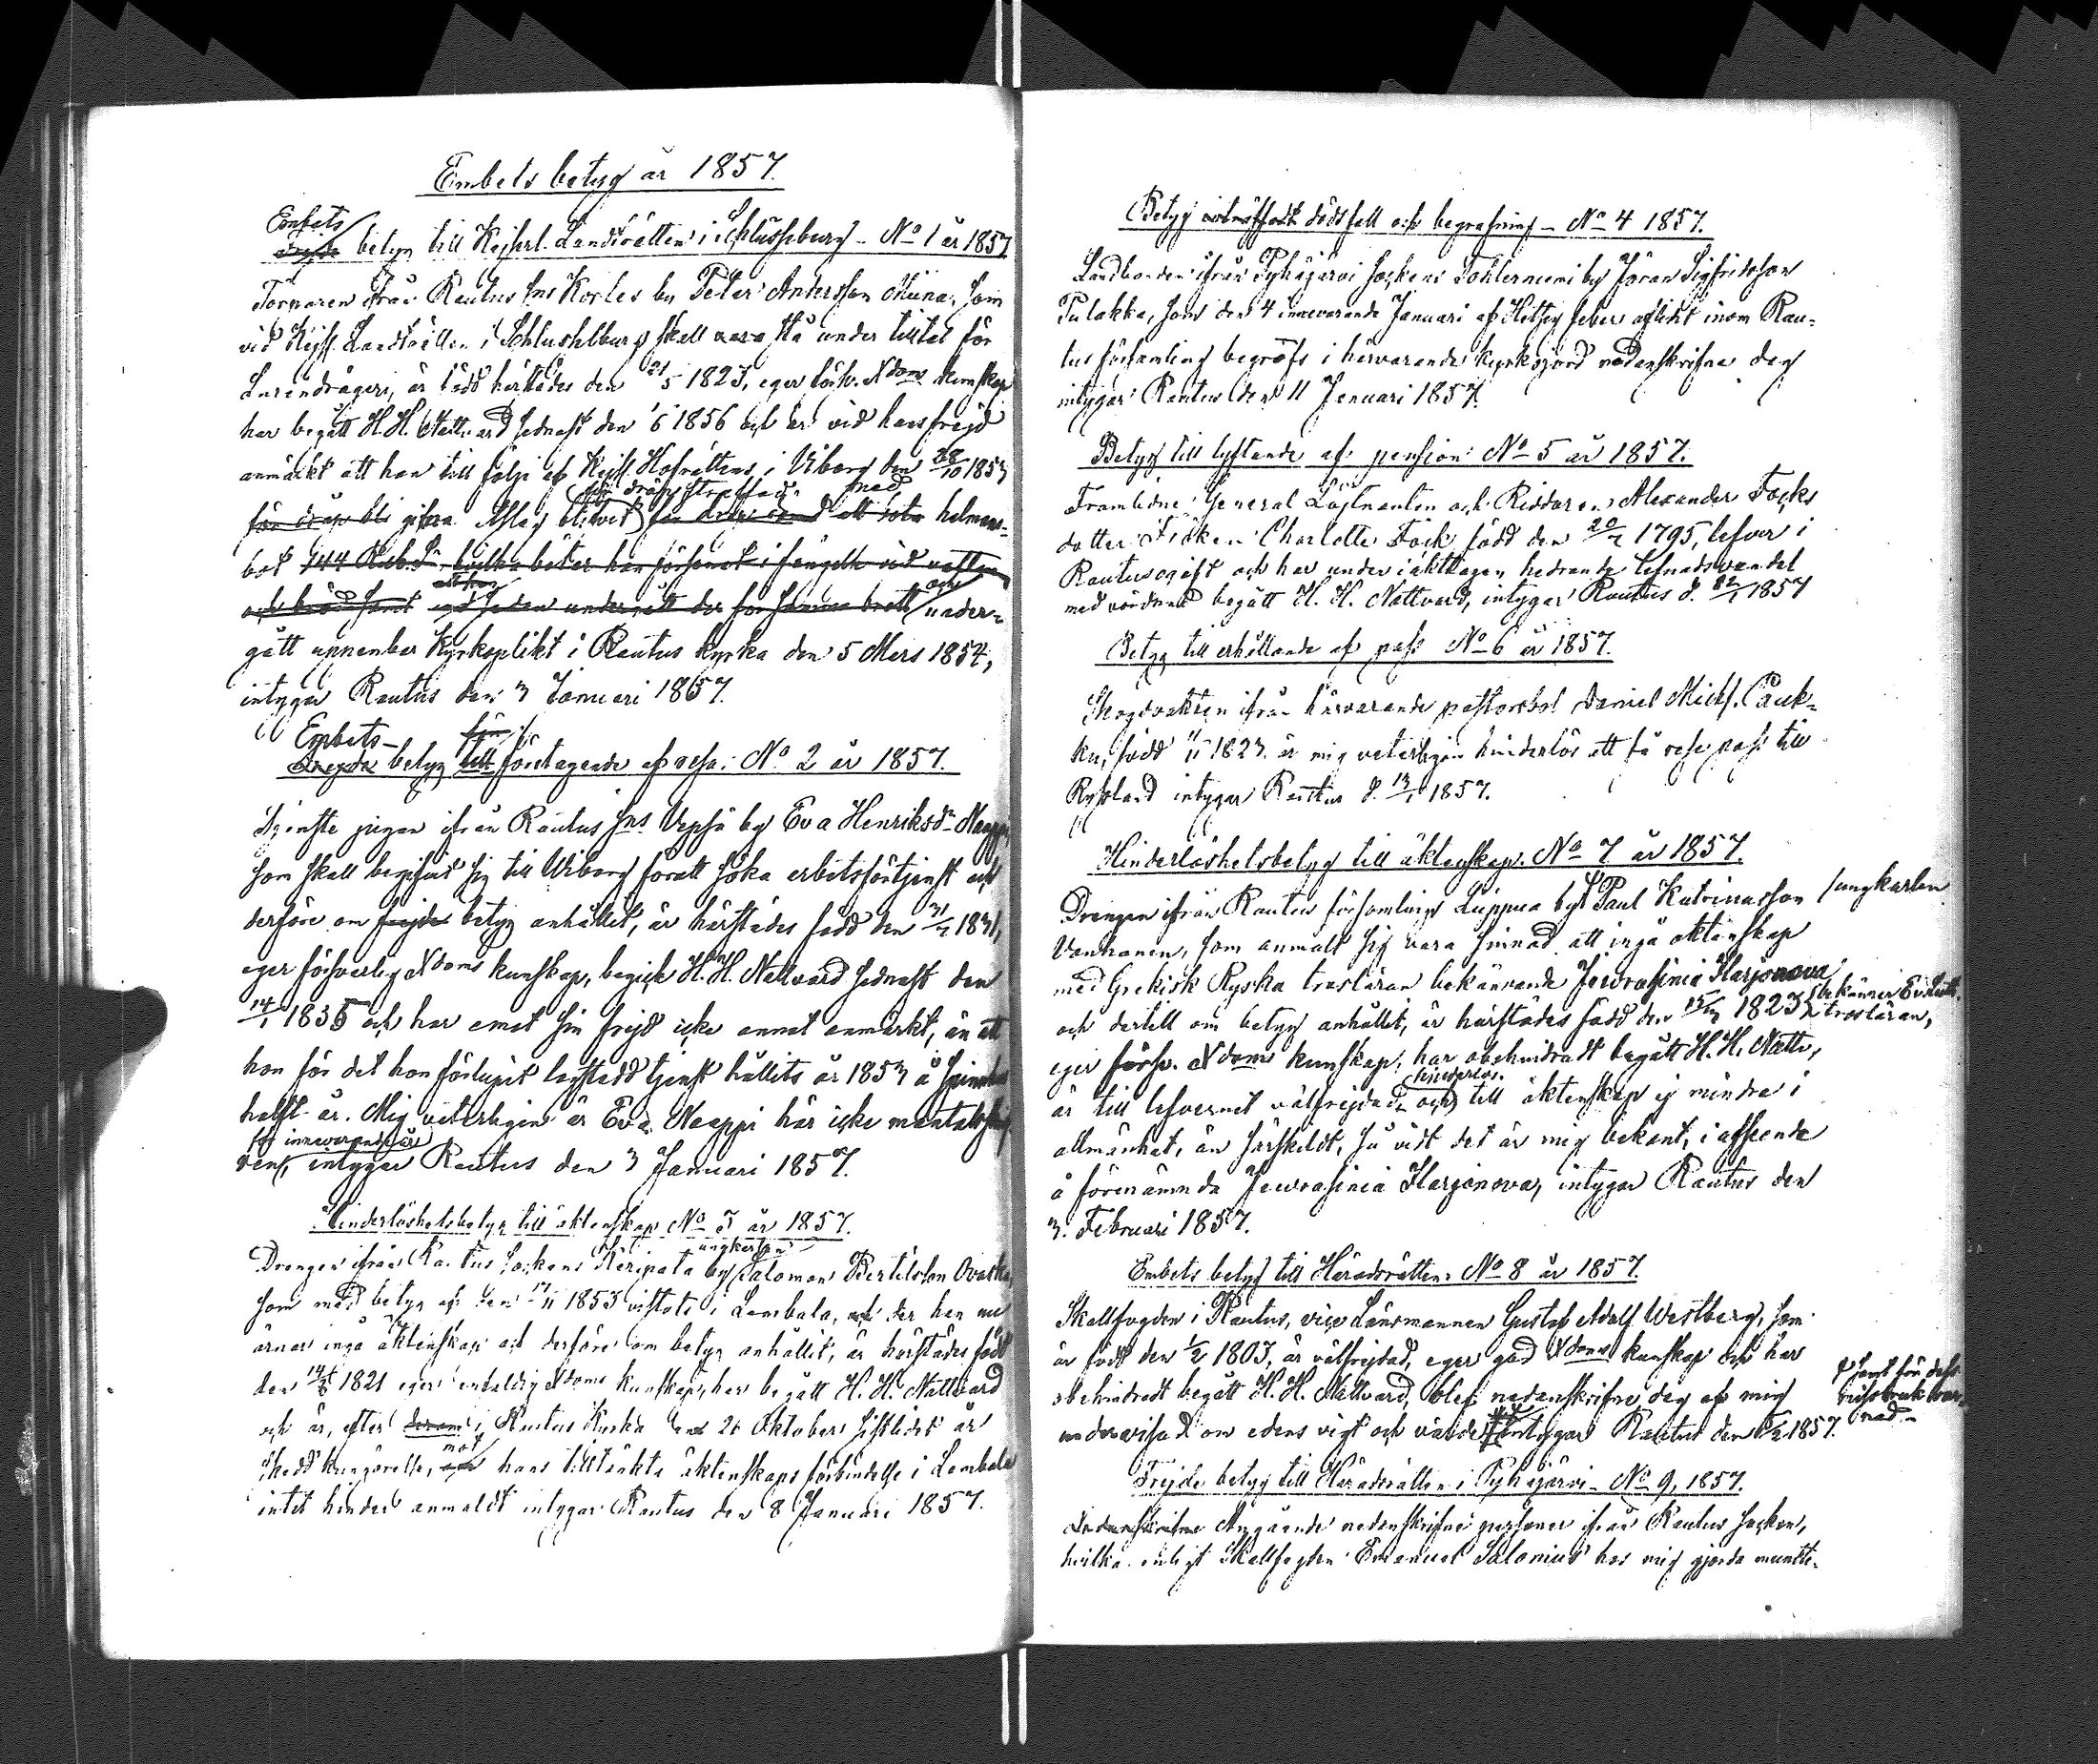 Embets betyg år 1857.
Embets
betyg till Kejserl. Landträtten i Schlüsselburg - No 1 år 1857
Torparen från Rautus Sns Korles by Peter Andersson Muna, som
vid Kejs. Landträtten i Schlusselburg skall vara stå under tilltal för
Lurendrägeri, är född härstädes den 21/5 1823, eger försv. Xdoms kunskap
har begått H. H. Nattvard sednast den 1856 och är vid hans frejd
anmärkt att han till följe af Kejs. Hofrättens i Wiborg den 28/10 1853
dråp straffad med
för dråp utslag blifvit för dråp att bota
bot 144 Rub. S. hvilka böter han försonat i fängelse vid vatten
att han och
och bröd samt under-
gått uppenbar Kyrkoplikt i Rautus kyrka den 5 Mars 1854,
intygar Rautus den 3 Januari 1857.
Embets- för
Frejde betyg till företagande af resa: No 2 år 1857.
Tjenste pigan ifrån Rautus Sns Vepsä by Eva Henriksdr Naappi
som skall begifva sig till Wiborg föratt söka arbetsförtjenst och
derföre om frejde betyg anhållit, är härstädes född den 1831,
eger försvarlig Xdoms kunskap, begick H. H. Nattvard sednast den
14/1 1835 och har emot sin frejd icke annat anmärkt, än att
hon för det hon förlupit lagstadd tjenst hållits år 1853 å spinnhus
halft år. Mig veterligen är Eva Naappi här icke mantalskrif-
för innevarande år
ven, intygar Rautus den 3 Januari 1857.
Hinderlöshetsbetyg till äktenskap No 3 år 1857.
ungkarlen
Drengen ifrån Rautus Sockens Keripata by Salomon Bertilsson Ovaska
som med betyg af den 17/11 1853 vistats i Lembala, och der han nu
ärnar ingå äktenskap och derföre om betyg anhållit, är härstädes född
den 14/8 1821 eger enfaldig Xdoms kunskap, har begått H. H. Nattvard
och är, efter i Rautus Kyrka den 26 Oktober sistlidet år
mot
skedd kungörelse, hans tilltänkta äktenskaps förbindelse i Lembala
intet hinder anmäldt intygar Rautus den 8 Januari 1857.
Betyg dödsfall och begrafning - No 4 1857.
Landbonden ifrån Pyhäjärvi Sockens Tohlerniemi by Jöran Sigfridsson
Pulakka, som den 4 innevarande Januari af Hetsig feber aflidit inom Rau-
tus församling begrofs i härvarande kyrkogård nedanskrifne dag
intygar Rautus den 11 Januari 1857.
Betyg till lyftande af pension No 5 år 1857.
Framlidne General Löjtnanten och Riddaren Alexander Focks
dotter Fröken Charlotte Fock, född den 1795, lefver i
Rautus ogift och har under iakttagen hedrande lefnadsvandel
med vördnad begått H. H. Nattvard, intygar Rautus d. 22/1 1857
Betyg till erhållande af pass No 6 år 1857.
Skogvaktren ifrån härvarande pastorsbol Daniel Michs. Pauk-
ku, född 1823 är mig veterligen hinderlös att få rese pass till
Ryssland intygar Rautus d. 13/1 1857.
Hinderlöshetsbetyg till äktenskap. No 7 år 1857.
Drengen ifrån Rautus församlings Leppua by Paul Katrinasson Jungkarlen
Vanhanen, som anmält sig vara sinnad att ingå äktenskap
med Grekisk Ryska trosläran bekännande Jewrosinia Harjonova
och dertill om betyg anhållit, är härstädes född den 1823 bekänner Ev. Luth.
trosläran,
eger försv. Xdoms kunskap, har obehindradt begått H. H. Nattv.,
hinderlös.
är till lefvernet välfrejdad, och till äktenskap ej mindre i
allmänhet, än särskildt, så vidt det är mig bekant, i afseende
å förenämnda Jewrosinia Harjonova, intygar Rautus den
3. Februari 1857.
Embets betyg till Häradsrätten: No 8 år 1857.
Skallfogden i Rautus, vice Länsmannen Gustaf Adolf Westberg, som
är född den 1/2 1803, är välfrejdad, eger god Xdoms kunskap och har
obehindradt begått H. H. Nattvard, blef nedanskrifne dag af mig
undervisad om edens vigt och värde intygar Rautus den 1857.
samt för dess
missbruk var-
nad.-
Frejde betyg till Häradsrätten i Pyhäjärvi - No 9, 1857.
Nedanskrifne Angående nedanskrifne personer ifrån Rautus socken,
hvilka enligt Skallfogden Emanuel Salonius hos mig gjorda muntli-